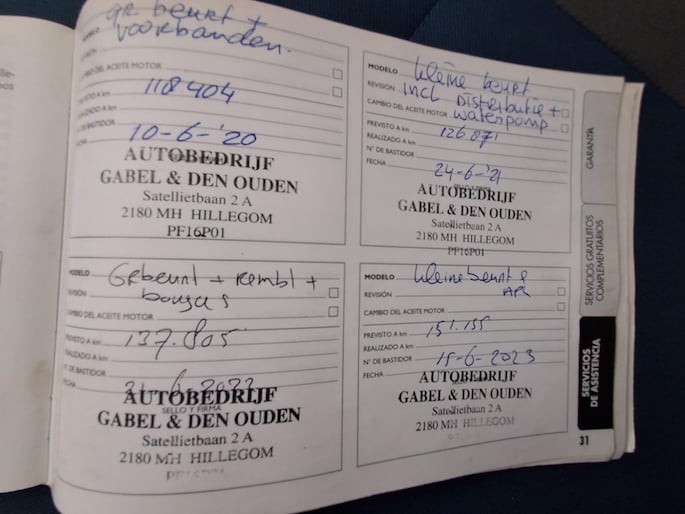 gr beurt +
voorbanden.
MODELO
REVISIÓN
CAMBIO DEL ACEITE MOTOR
PREVISTO A km
118404
REALIZADO A km
Nº DE BASTIDOR
FECHA
10-6-'20
AUTOBEDRIJF
GABEL & DEN OUDEN
Satellietbaan 2 A
2180 MH HILLEGOM
PF16P01
MODELO
kleine beurt
REVISIÓN
incl Distributie +
CAMBIO DEL ACEITE MOTOR
waterpomp
PREVISTO A km
126871
REALIZADO A km
Nº DE BASTIDOR
FECHA
24-6-'21
AUTOBEDRIJF
GABEL & DEN OUDEN
Satellietbaan 2 A
2180 MH HILLEGOM
PF16P01
MODELO
Gr beurt +
REVISIÓN
bougies
CAMBIO DEL ACEITE MOTOR
PREVISTO A km
137.805
REALIZADO A km
Nº DE BASTIDOR
FECHA
6-2022
AUTOBEDRIJF
SELLO Y FIRMA
GABEL & DEN OUDEN
Satellietbaan 2 A
2180 MH HILLEGOM
MODELO
kleine beurt &
REVISIÓN
APK
CAMBIO DEL ACEITE MOTOR
PREVISTO A km
151.155
REALIZADO A km
Nº DE BASTIDOR
FECHA
15-6-2023
AUTOBEDRIJF
GABEL & DEN OUDEN
Satellietbaan 2 A
2180 MH HILLEGOM
GARANTÍA
SERVICIOS GRATUITOS
COMPLEMENTARIOS
SERVICIOS
DE ASISTENCIA
31